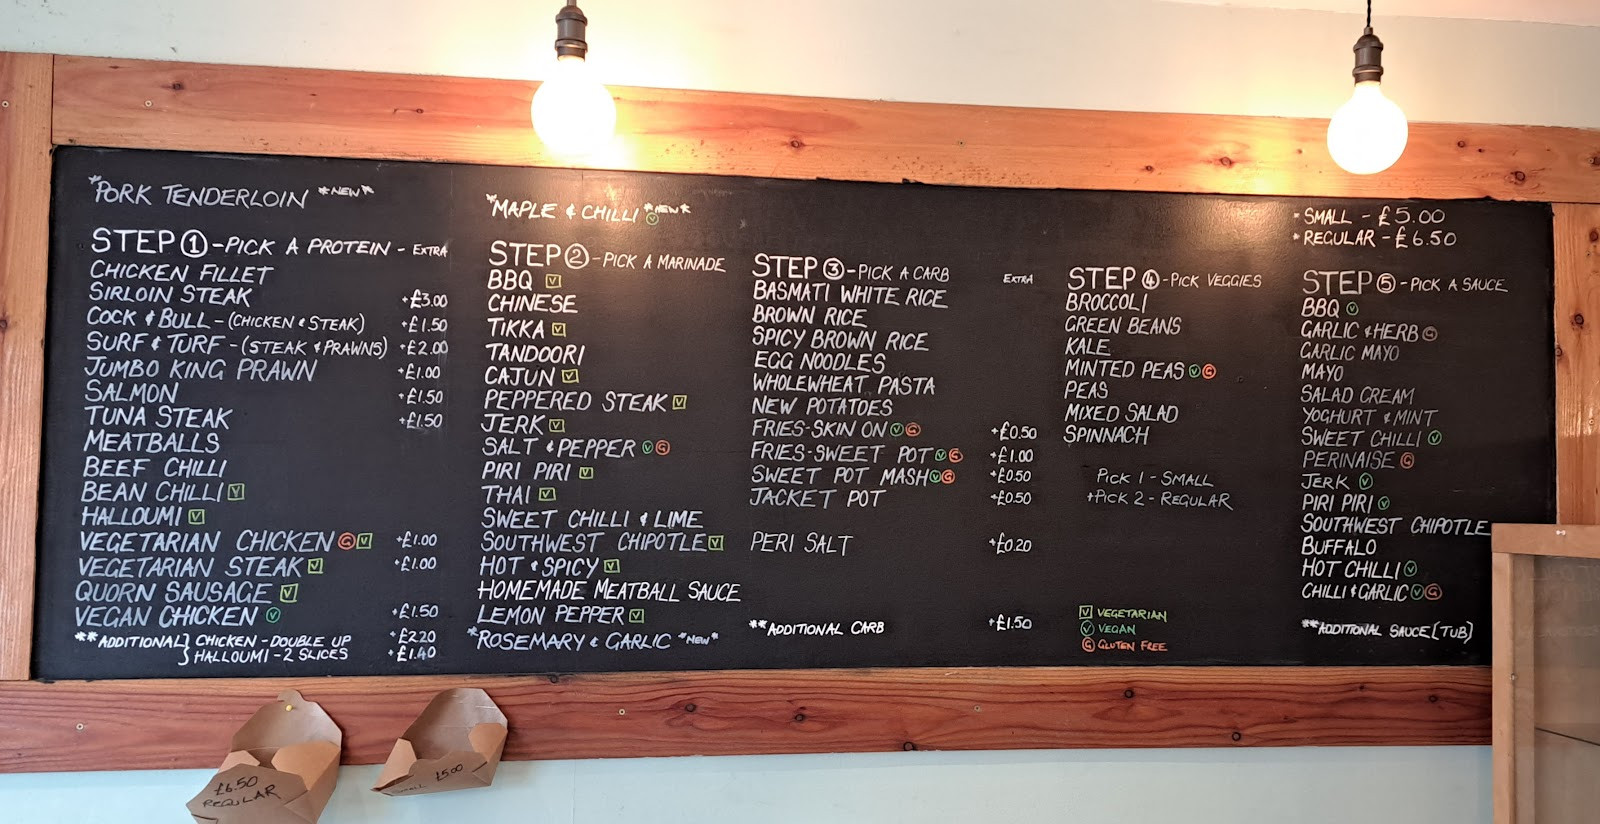 *PORK TENDERLOIN *NEW*
STEP 1 - PICK A PROTEIN - EXTRA
CHICKEN FILLET
SIRLOIN STEAK +£3.00
COCK & BULL - (CHICKEN & STEAK) +£1.50
SURF & TURF - (STEAK & PRAWNS) +£2.00
JUMBO KING PRAWN +£1.00
SALMON +£1.50
TUNA STEAK +£1.50
MEATBALLS
BEEF CHILLI
BEAN CHILLI V
HALLOUMI V
VEGETARIAN CHICKEN G V +£1.00
VEGETARIAN STEAK V +£1.00
QUORN SAUSAGE V
VEGAN CHICKEN V +£1.50
**ADDITIONAL} CHICKEN - DOUBLE UP +£2.20
} HALLOUMI - 2 SLICES +£1.40
*MAPLE & CHILLI *NEW* V
STEP 2 - PICK A MARINADE
BBQ V
CHINESE
TIKKA V
TANDOORI
CAJUN V
PEPPERED STEAK V
JERK V
SALT & PEPPER V G
PIRI PIRI V
THAI V
SWEET CHILLI & LIME
SOUTHWEST CHIPOTLE V
HOT & SPICY V
HOMEMADE MEATBALL SAUCE
LEMON PEPPER V
*ROSEMARY & GARLIC *NEW*
STEP 3 - PICK A CARB EXTRA
BASMATI WHITE RICE
BROWN RICE
SPICY BROWN RICE
EGG NOODLES
WHOLEWHEAT PASTA
NEW POTATOES
FRIES-SKIN ON V G +£0.50
FRIES-SWEET POT V G +£1.00
SWEET POT MASH V G +£0.50
JACKET POT +£0.50
PERI SALT +£0.20
**ADDITIONAL CARB +£1.50
STEP 4 - PICK VEGGIES
BROCCOLI
GREEN BEANS
KALE
MINTED PEAS V G
PEAS
MIXED SALAD
SPINNACH
PICK 1 - SMALL
+PICK 2 - REGULAR
V VEGETARIAN
V VEGAN
G GLUTEN FREE
* SMALL - £5.00
* REGULAR - £6.50
STEP 5 - PICK A SAUCE
BBQ V
GARLIC & HERB G
GARLIC MAYO
MAYO
SALAD CREAM
YOGHURT & MINT
SWEET CHILLI V
PERINAISE G
JERK V
PIRI PIRI V
SOUTHWEST CHIPOTLE
BUFFALO
HOT CHILLI V
CHILLI & GARLIC V G
**ADDITIONAL SAUCE [TUB]
£6.50
REGULAR
£5.00